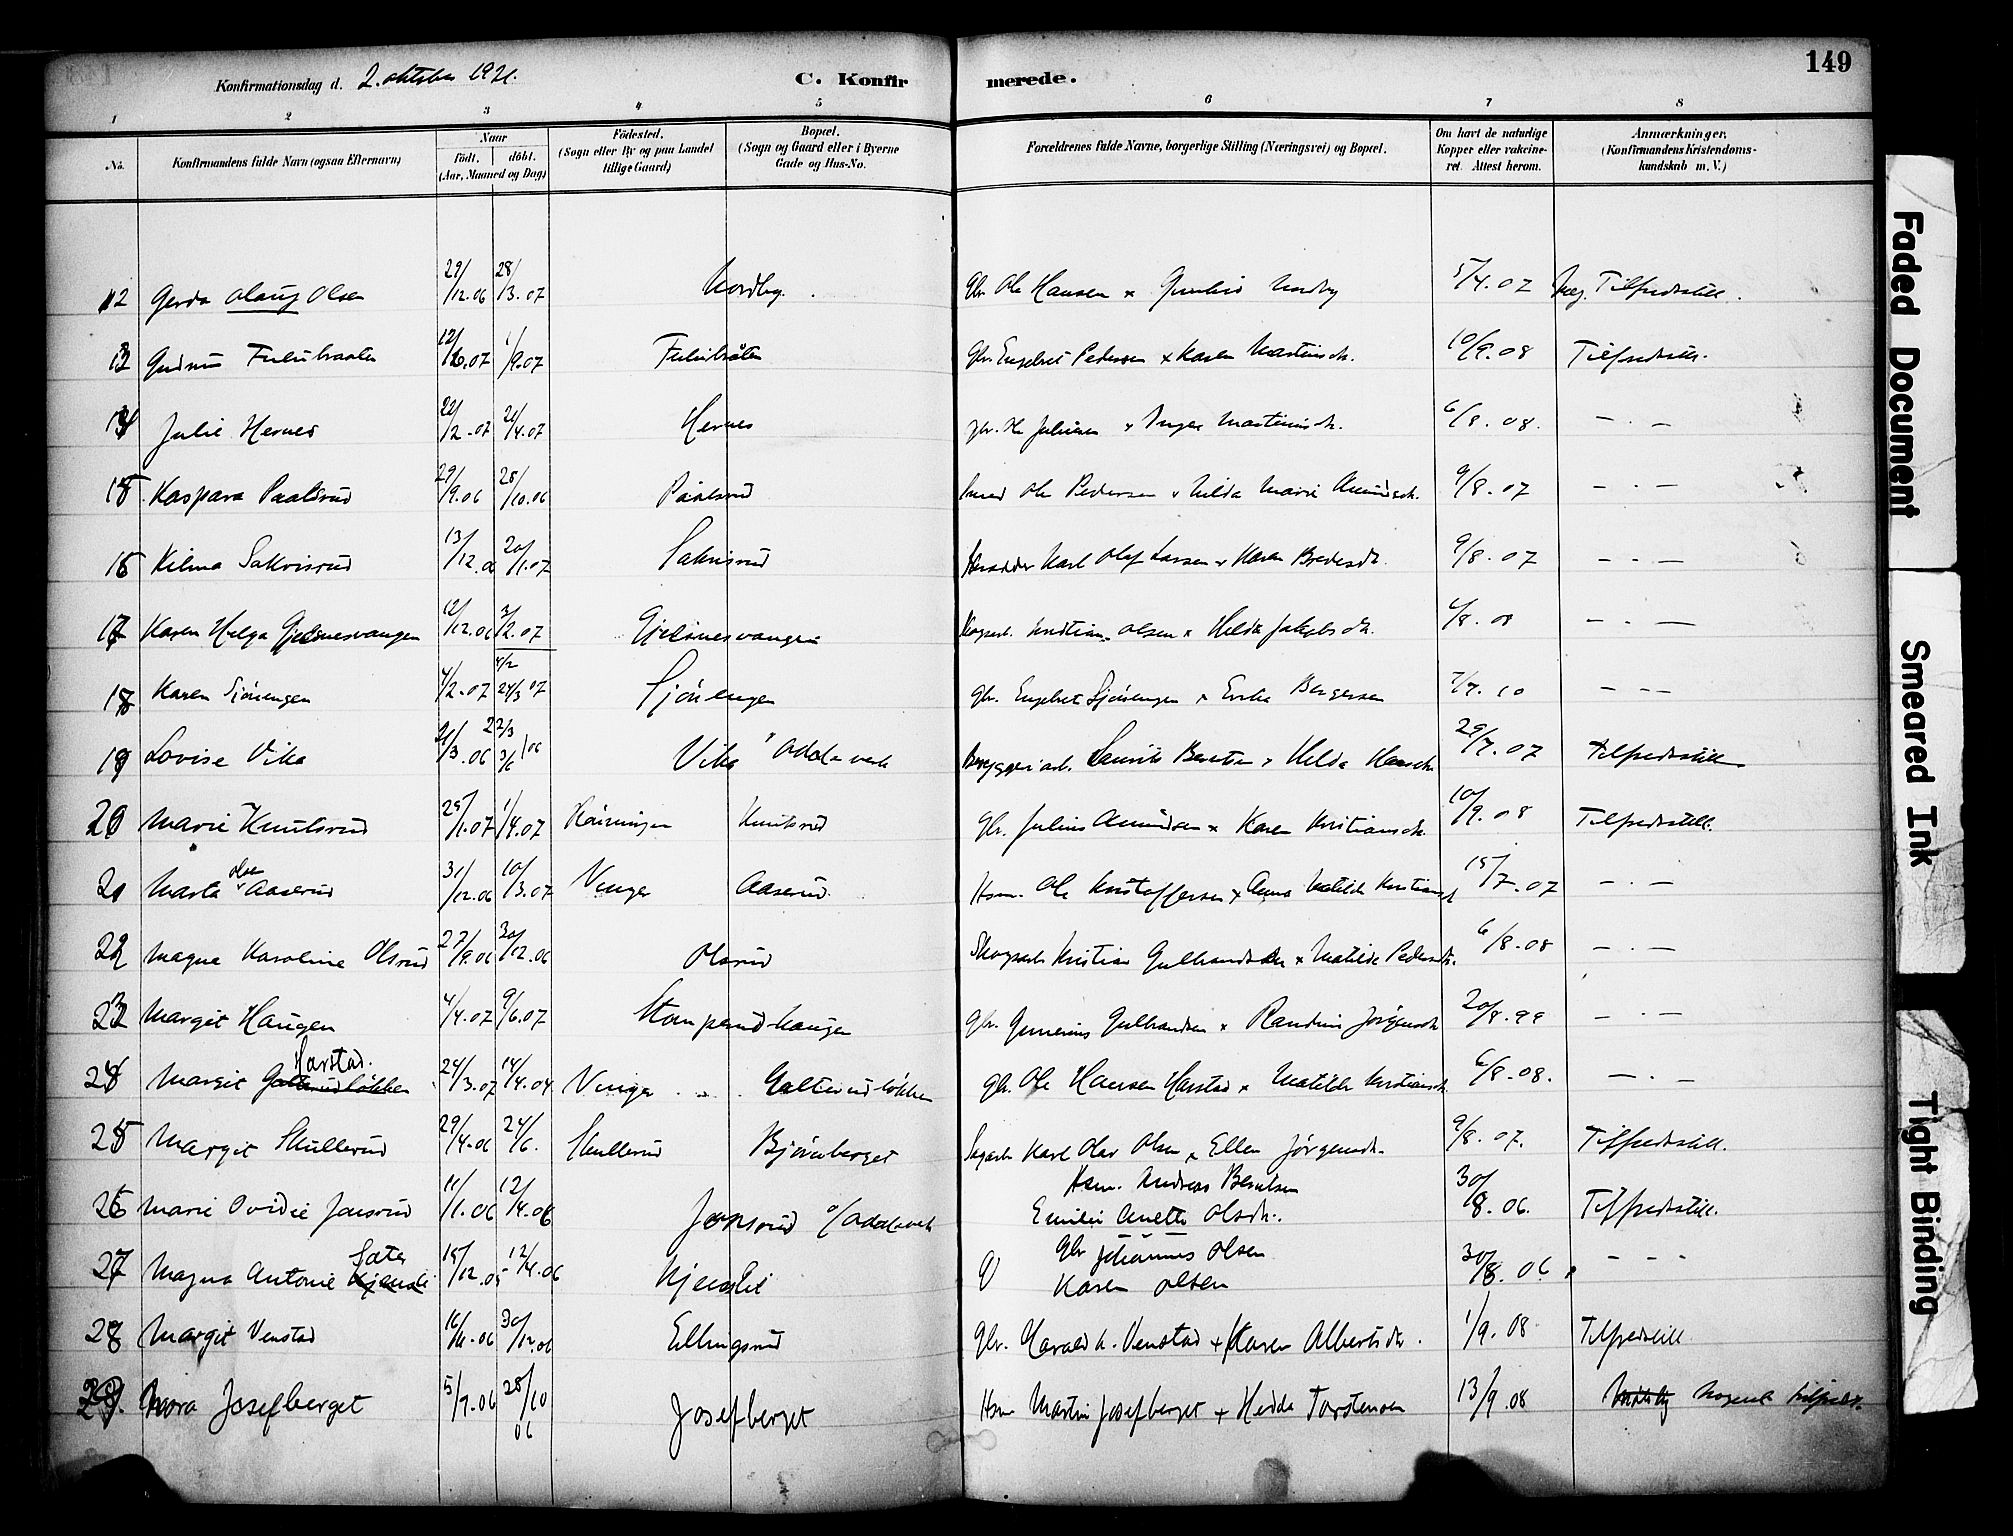 149
Konfirmationsdag d. 2. oktober 1921. C. Konfirmerede.
1 2 3 4 5 6 7 8
No. Konfirmandens fulde Navn (ogsaa Efternavn) Naar födt. döbt. (Aar, Maaned og Dag) Födested. (Sogn eller By og paa Landet tillige Gaard) Bopæl. (Sogn og Gaard eller i Byerne Gade og Hus-No. Forældrenes fulde Navne, borgerlige Stilling (Næringsvei) og Bopæl. Om havt de naturlige Kopper eller vakcineret. Attest herom. Anmærkninger. (Konfirmandens Kristendomskundskab m. V.)
12 Gerda Olaug Olsen 29/12.06 28/3.07 Nordby. Gbr. Ole Hansen x Nordby 5/4.07 Meg. Tilfredsstill.
13 Gudrun 12/6.07 1/9.07 Gbr. Engebret Pedersen x Karen Martinsdtr. 10/9.08 Tilfredsstill.
14 Julie Hernes 22/2.07 21/4.07 Hernes Gbr. Ole Julius­sen x Inger Martinusdtr. 6/8.08. — . —
15 Kaspara Paalsrud 29/9.06 28/10.06 Paalsrud Ole Pedersen x Hilda Marie Amundsdtr. 9/8.07 — . —
16 Kilma Sakrisrud 13/12.06 20/1.07 Sakrisrud Karl Olaf Larsen x Karen Bredesdtr. 9/8.07 — . —
17 Karen Helga Gjelsnesvangen 12/12.06 3/2.07 Gjelsnesvangen Skogsarb. Kristian Olsen x Helda Jakobsdtr. 6/8.08 — . —
18 Karen Sjöliengen 4/2.07 4/2 24/3 07 Gbr. Engebret x Bergersen 7/7.10 — — —
19 Lovise Vika 21/3.06 22/3 3/6 06 Vika Odals verk Laurits Berntsen x Helda Hansdtr. 29/7.07 Tilfredsstill.
20 Marie Knutsrud 25/1.07 1/4.07 Knutsrud Gbr. Julius Amundsen x Karen Kristiansdtr. 10/9.08 Tilfredsstill.
21 Marta Olsen Aaserud 31/12.06 10/3.07 Vinger Aaserud. Hsm. Ole Kristoffersen x Anna Matilde Kristiansd 15/7.07 — . —
22 Magna Karoline Olsrud 27/9.06 30/12.06 Olsrud Skogsarb Kristian x Matilde Pedersdtr. 6/8.08 — . —
23 Margit Haugen 4/4.07 9/6.07 Stomperudhaugen Gbr. Gulbrandsen x Jörgensdtr 20/8.99 — . —
24 Margit Galterudlökken Harstad. 24/3.07 14/4.04 Vinger Galterudlökken Gbr. Ole Hansen Harstad x Matilde Kristiansdtr. 6/8.08. — . —
25 Margit Skullerud 29/4.06 24/6. Skullerud Björneberget Sagarb Karl Olav Olsen x Ellen Jörgensdtr. 9/8.07. Tilfredsstill.
26 Marie Ovidie Jonsrud 11/1.06 12/4.06 Jonsrud o/ Odalsverk Hsm. Andreas Berntsen Emilie Anette Olsdtr. 30/8.06. Tilfredsstill.
27 Magna Antonie Kjensli Sæter 15/12.05 12/4.06 Kjensli Gbr Johannes Olsen Karen Olsen 30/8.06 - - -
28 Margit Venstad 16/11.06 30/12.06 Ellingsrud Gbr. Harald H. Venstad + Karen Albertsdtr. 1/9.08 Tilfredsstill
29. Nora Josefberget 5/7.06 28/10 06 Josefberget Hsm Martin Josefberget + Hedda Torstensen 13/9.08 Nogenl. tilfredst.
Faded Document
Smeared Ink
Tight Binding